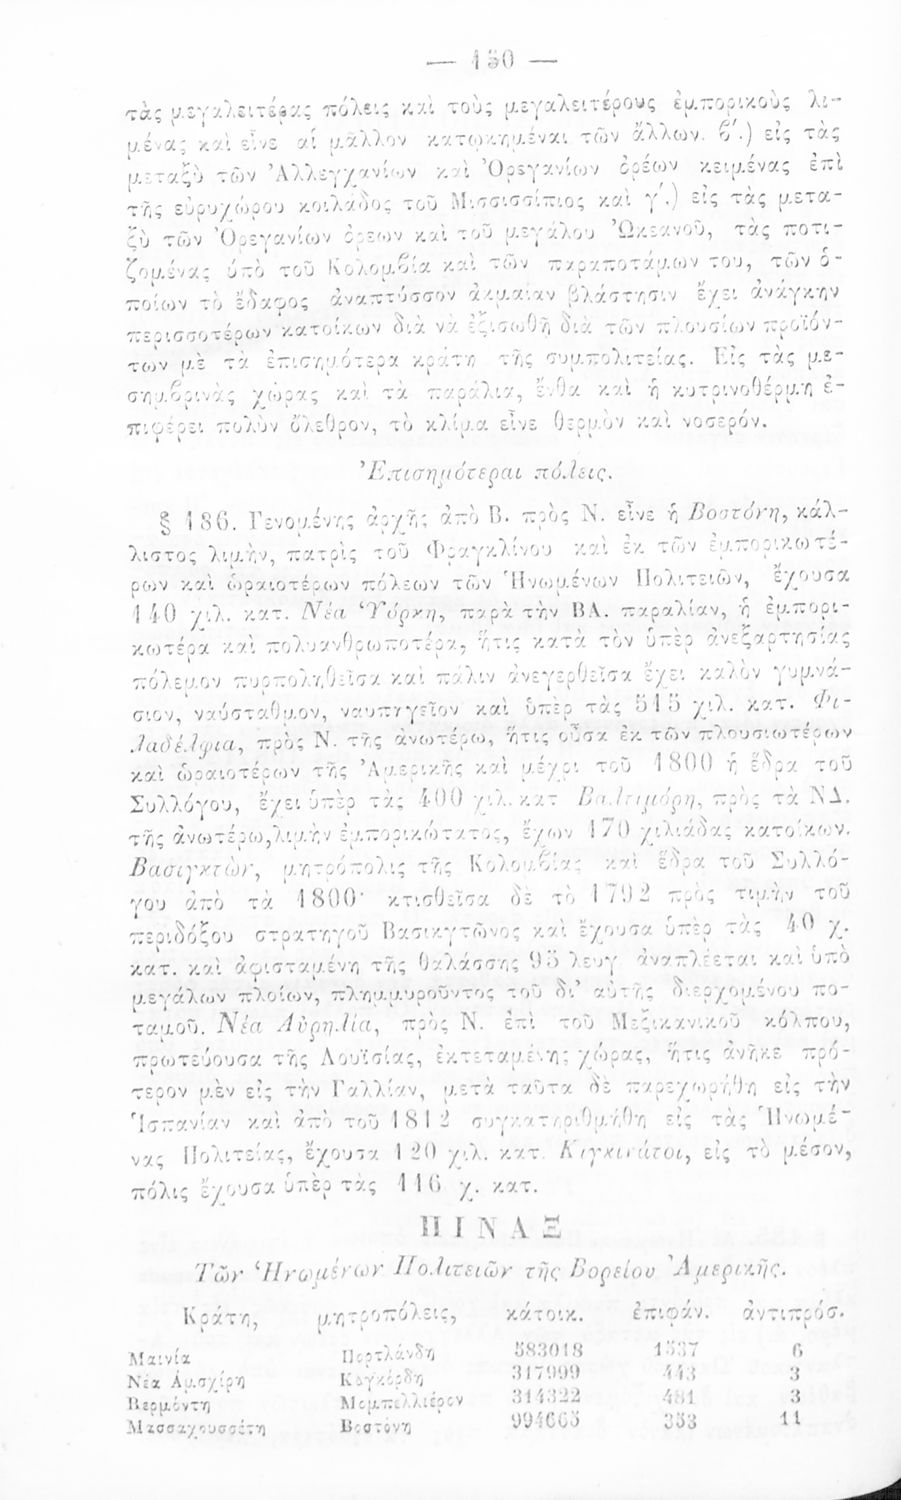 — 150 —
τὰς μεγαλειτέρας πόλεις καὶ τοὺς μεγαλειτέρους ἐμπορικοὺς λι-
μένας καὶ εἶνε αἱ μᾶλλον κατῳκημέναι τῶν ἄλλων. β΄.) εἰς τὰς
μεταξὺ τῶν Ἀλλεγχανίων καὶ Ὀρεγανίων ὀρέων κειμένας ἐπὶ
τῆς εὐρυχώρου κοιλάδος τοῦ Μισσισσίπιος καὶ γ΄.) εἰς τὰς μετα-
ξὺ τῶν Ὀρεγανίων ὀρεων καὶ τοῦ μεγάλου Ὠκεανοῦ, τὰς ποτι-
ζομένας ὑπὸ τοῦ Κολομβία καὶ τῶν παραποτάμων του, τῶν ὁ-
ποίων τὸ ἔδαφος ἀναπτύσσον ἀκμαίαν βλάστησιν ἔχει ἀνάγκην
περισσοτέρων κατοίκων διὰ νὰ ἐξισωθῇ διὰ τῶν πλουσίων προϊόν-
των μὲ τὰ ἐπισημότερα κράτη τῆς συμπολιτείας. Εἰς τὰς με-
σημβρινὰς χώρας καὶ τὰ παράλια, ἔνθα καὶ ἡ κυτρινοθέρμη ἐ-
πιφέρει πολὺν ὄλεθρον, τὸ κλίμα εἶνε θερμὸν καὶ νοσερόν.
Ἐπισημότεραι πόλεις.
§ 186. Γενομένης ἀρχῆς ἀπὸ Β. πρὸς Ν. εἶνε ἡ Βοστόνη, κάλ-
λιστος λιμὴν, πατρὶς τοῦ Φραγκλίνου καὶ ἐκ τῶν ἐμπορικωτέ-
ρων καὶ ὡραιοτέρων πόλεων τῶν Ἡνωμένων Πολιτειῶν, ἔχουσα
140 χιλ. κατ. Νέα Ὑόρκη, παρὰ τὴν ΒΑ. παραλίαν, ἡ ἐμπορι-
κωτέρα καὶ πολυανθρωποτέρα, ἥτις κατὰ τὸν ὑπὲρ ἀνεξαρτησίας
πόλεμον πυρποληθεῖσα καὶ πάλιν ἀνεγερθεῖσα ἔχει καλὸν γυμνά-
σιον, ναύσταθμον, ναυπηγεῖον καὶ ὑπὲρ τὰς 515 χιλ. κατ. Φι-
λαδέλφια, πρὸς Ν. τῆς ἀνωτέρω, ἥτις οὖσα ἐκ τῶν πλουσιωτέρων
καὶ ὡραιοτέρων τῆς Ἀμερικῆς καὶ μέχρι τοῦ 1800 ἡ ἕδρα τοῦ
Συλλόγου, ἔχει ὑπὲρ τὰς 400 χιλ. κατ Βαλτιμόρη, πρὸς τὰ ΝΔ.
τῆς ἀνωτέρω, λιμὴν ἐμπορικώτατος, ἔχων 170 χιλιάδας κατοίκων.
Βασιγκτὼν, μητρόπολις τῆς Κολομβίας καὶ ἕδρα τοῦ Συλλό-
γου ἀπὸ τὰ 1800· κτισθεῖσα δὲ τὸ 1792 πρὸς τιμὴν τοῦ
περιδόξου στρατηγοῦ Βασικγτῶνος καὶ ἔχουσα ὑπὲρ τὰς 40 χ.
κατ. καὶ ἀφισταμένη τῆς θαλάσσης 95 λευγ. ἀναπλέεται καὶ ὑπὸ
μεγάλων πλοίων, πλημμυροῦντος τοῦ δι’ αὐτῆς διερχομένου πο-
ταμοῦ. Νέα Αὐρηλία, πρὸς Ν. ἐπὶ τοῦ Μεξικανικοῦ κόλπου,
πρωτεύουσα τῆς Λουϊσίας, ἐκτεταμένης χώρας, ἥτις ἀνῆκε πρό-
τερον μὲν εἰς τὴν Γαλλίαν, μετὰ ταῦτα δὲ παρεχωρήθη εἰς τὴν
Ἱσπανίαν καὶ ἀπὸ τοῦ 1812 συγκατηριθμήθη εἰς τὰς Ἡνωμέ-
νας Πολιτείας, ἔχουσα 120 χιλ. κατ. Κιγκινάτοι, εἰς τὸ μέσον,
πόλις ἔχουσα ὑπὲρ τὰς 116 χ. κατ.
ΠΙΝΑΞ
Τῶν Ἡνωμένων Πολιτειῶν τῆς Βορείου Ἀμερικῆς.
Κράτη, μητροπόλεις, κάτοικ. ἐπιφάν. ἀντιπρόσ.
Μαινία Πορτλάνδη 583018 1537 6
Νέα Ἀμσχίρη Κογκόρδη 317999 443 3
Βερμόντη Μομπελλιέρον 314322 481 3
Μασσαχουσσέτη Βοστόνη 994665 353 11